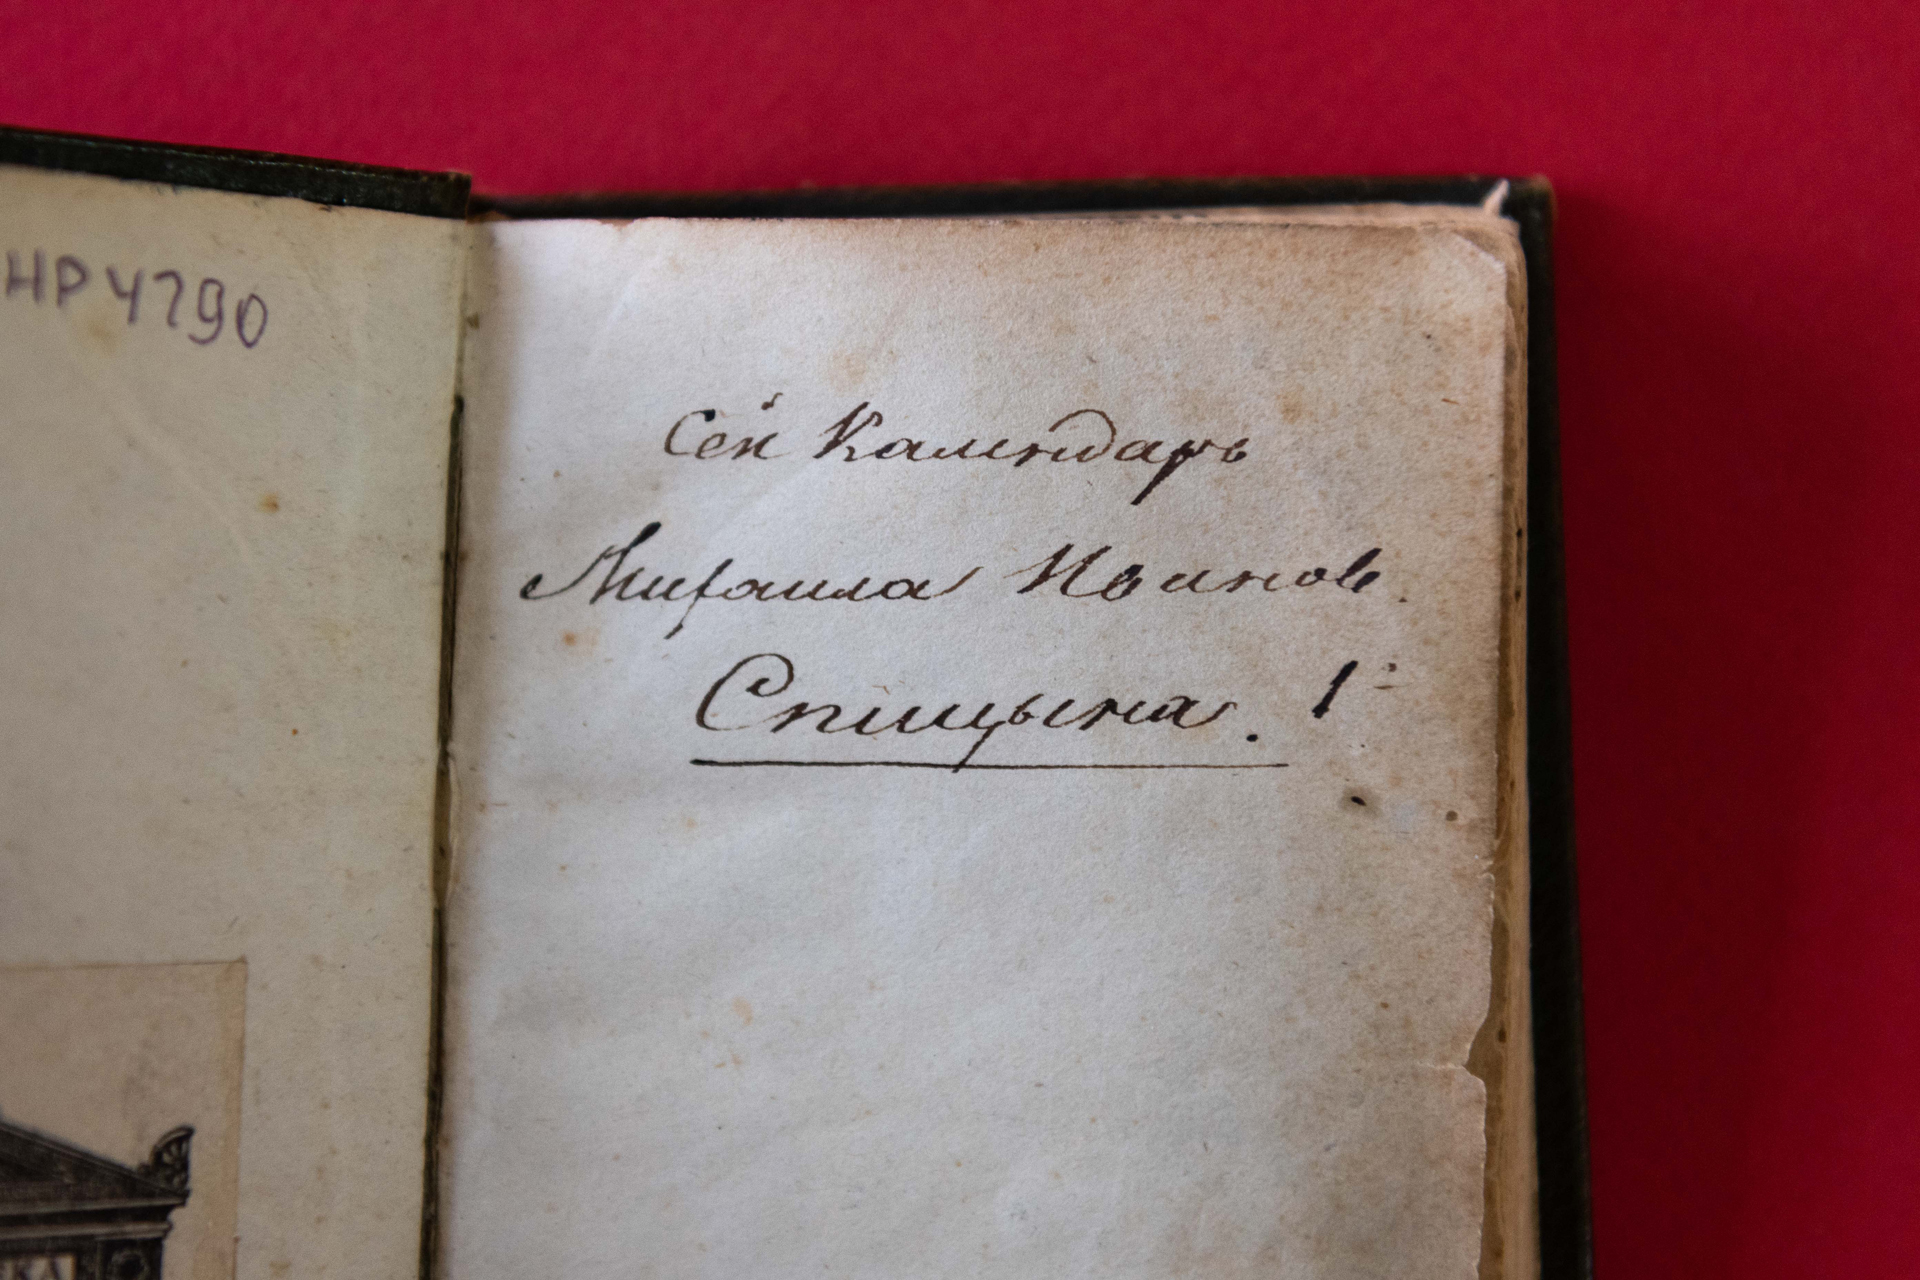 НР 4790
Сей Календарь
Михаила Иванов.
Спицына. 1